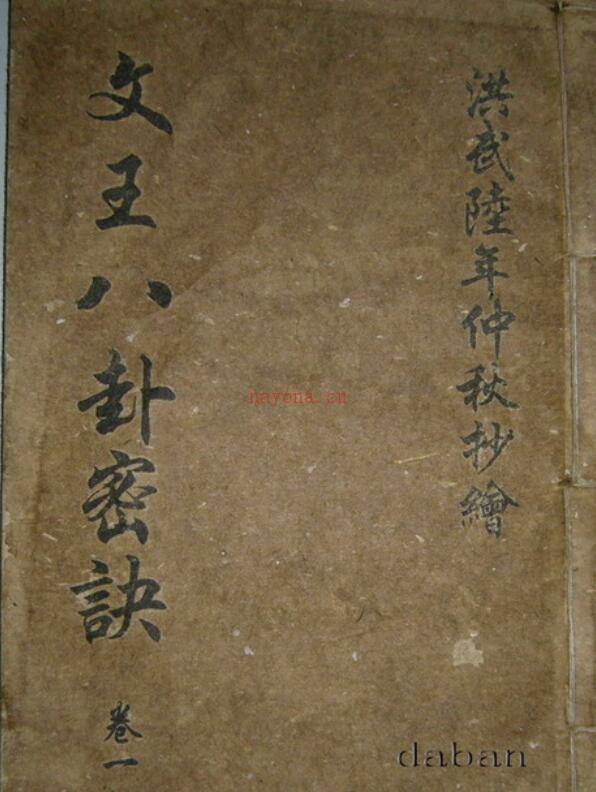 洪武陸年仲秋抄繪
文王八卦密訣
卷一
nayona.cn
daban